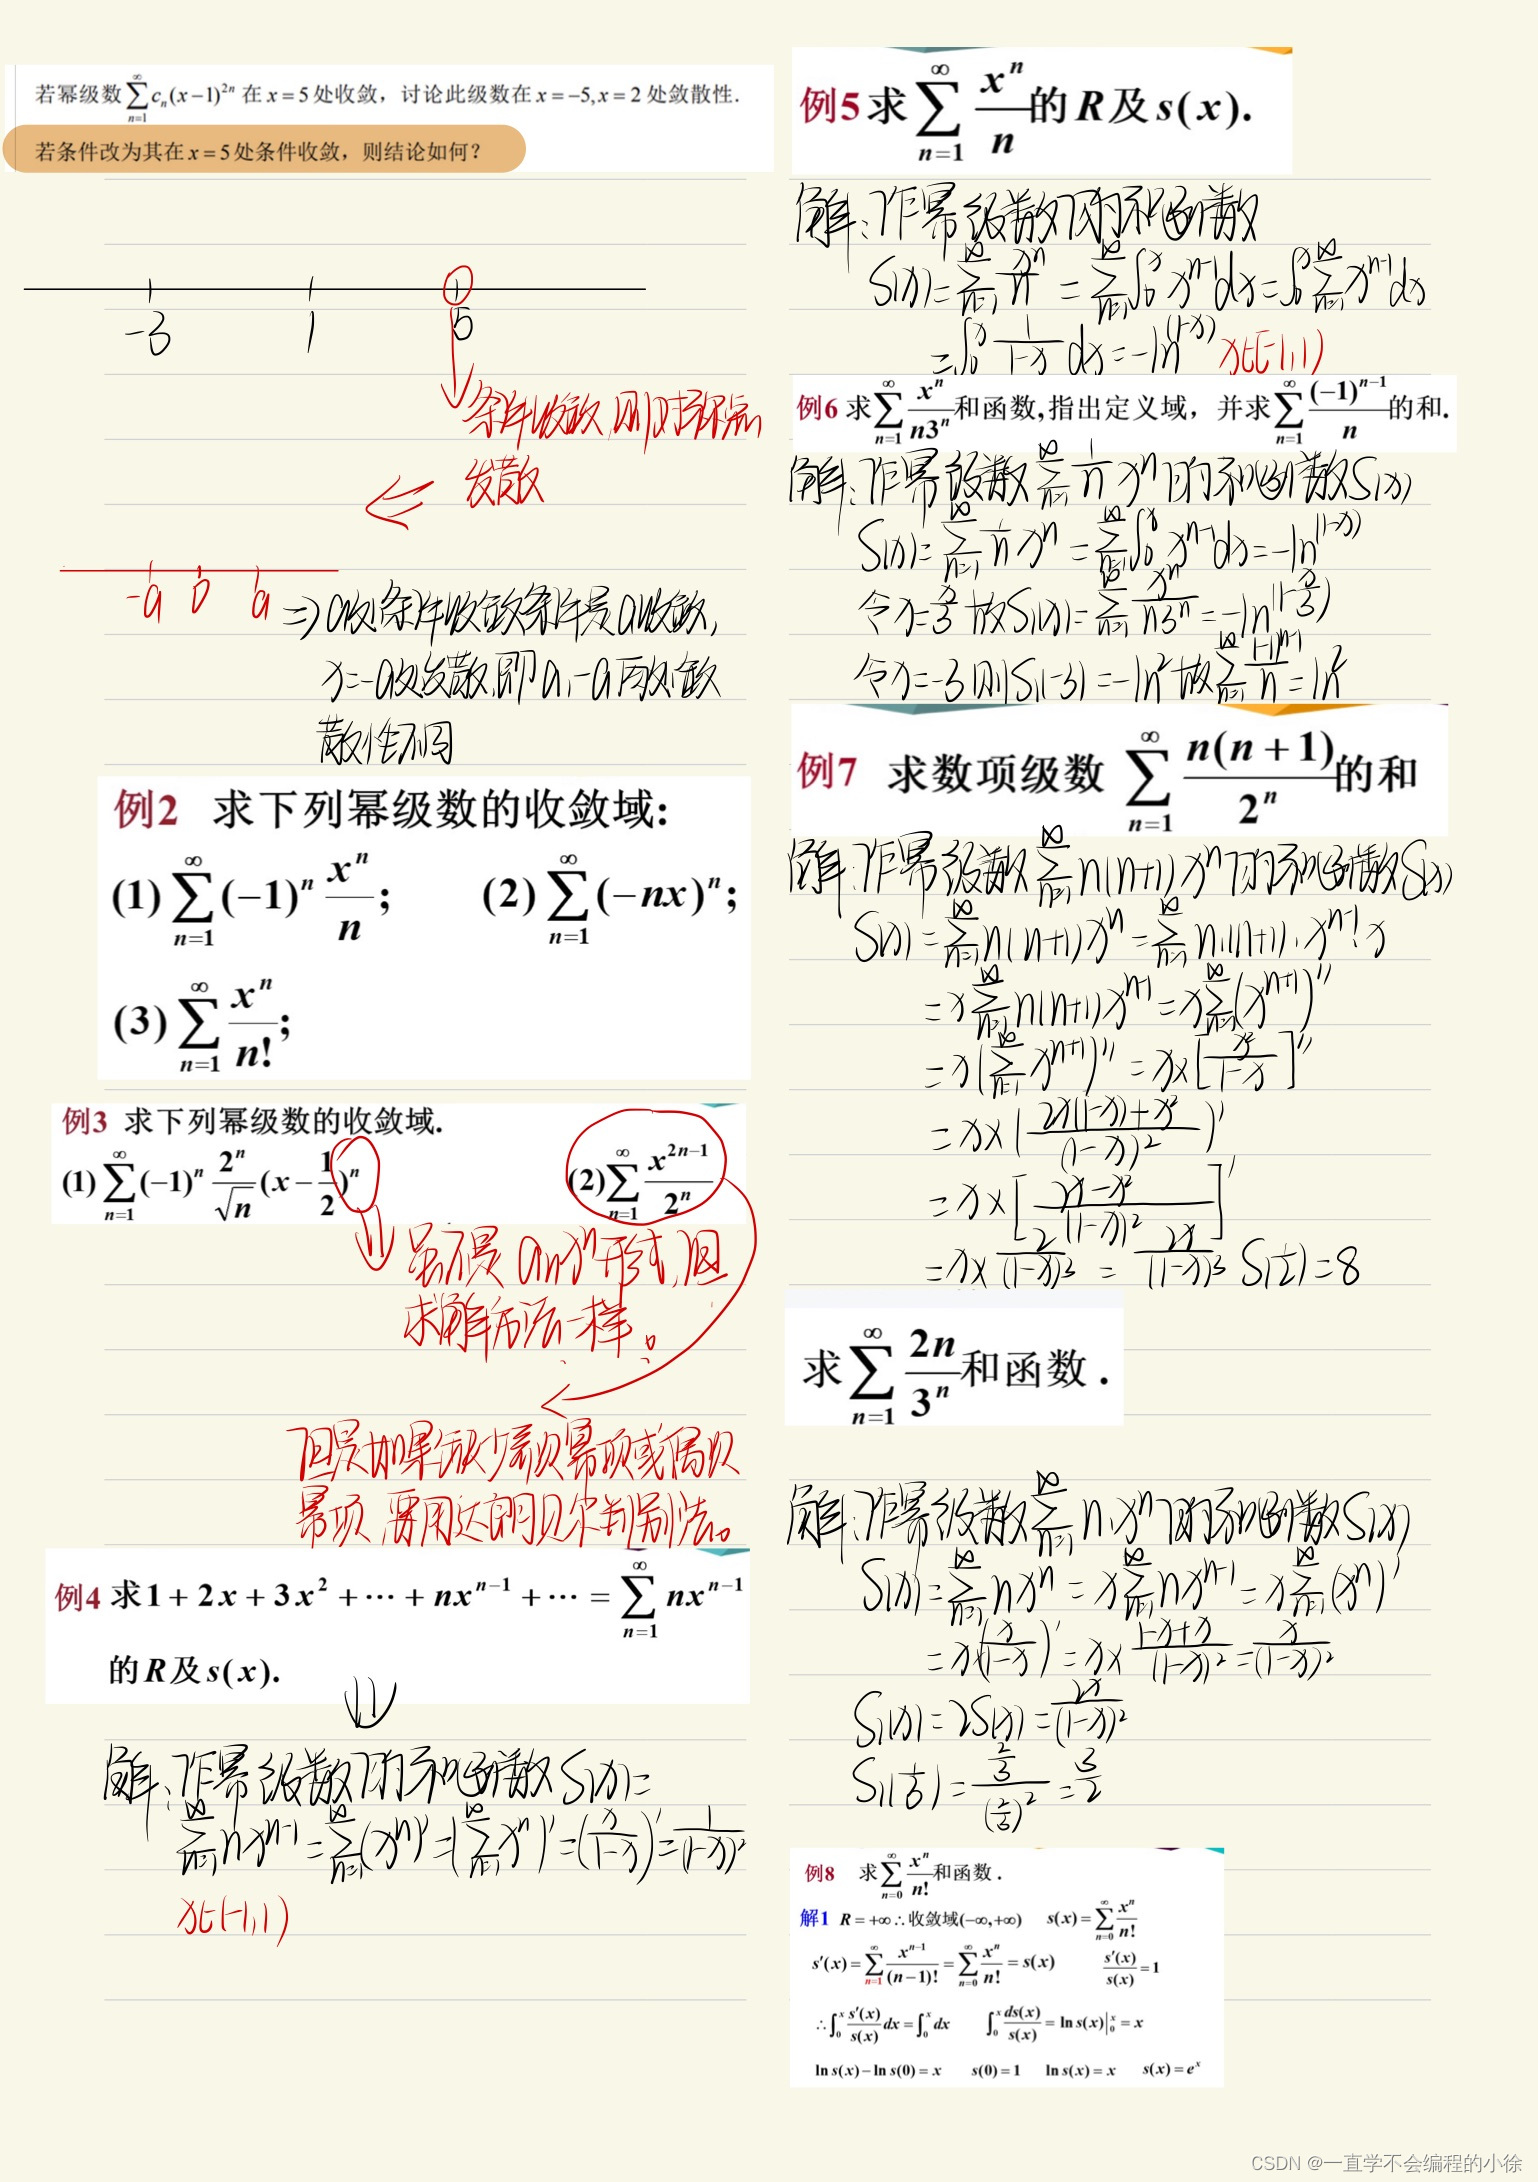 若幂级数∑_{n=1}^{∞} c_n(x−1)^{2n} 在 x=5 处收敛，讨论此级数在 x=−5,x=2 处敛散性.
若条件改为其在 x=5 处条件收敛，则结论如何？
-3 1 5
条件收敛,则对称点
发散
-a 0 a
=> a处条件收敛条件是a收敛,
x=-a处发散,即a,-a两处敛
散性不同
例2 求下列幂级数的收敛域:
(1) ∑_{n=1}^{∞} (−1)^n x^n/n; (2) ∑_{n=1}^{∞} (−nx)^n;
(3) ∑_{n=1}^{∞} x^n/n!;
例3 求下列幂级数的收敛域.
(1) ∑_{n=1}^{∞} (−1)^n 2^n/√n (x−1/2)^n (2) ∑_{n=1}^{∞} x^{2n−1}/2^n
虽不是 a_n x^n 形式,但
求解方法一样。
但是如果缺少奇次幂项或偶次
幂项,要用达朗贝尔判别法。
例4 求1+2x+3x^2+⋯+nx^{n−1}+⋯=∑_{n=1}^{∞} nx^{n−1}
的R及s(x).
解:作幂级数的和函数S(x)=
∑_{n=1}^{∞} nx^{n-1} = ∑_{n=1}^{∞} (x^n)' = (∑_{n=1}^{∞} x^n)' = (x/(1-x))' = 1/(1-x)^2
x∈(-1,1)
例5 求∑_{n=1}^{∞} x^n/n 的R及s(x).
解:作幂级数的和函数
S(x)=∑_{n=1}^{∞} x^n/n = ∑_{n=1}^{∞} ∫_0^x x^{n-1}dx = ∫_0^x ∑_{n=1}^{∞} x^{n-1}dx
=∫_0^x 1/(1-x) dx = -ln(1-x) x∈[-1,1)
例6 求∑_{n=1}^{∞} x^n/(n3^n) 和函数,指出定义域，并求∑_{n=1}^{∞} (−1)^{n−1}/n 的和.
解:作幂级数∑_{n=1}^{∞} 1/n x^n的和函数S(x)
S(x)=∑_{n=1}^{∞} 1/n x^n = ∑_{n=1}^{∞} ∫_0^x x^{n-1}dx = -ln(1-x)
令x=x/3 故S_1(x)=∑_{n=1}^{∞} x^n/(n3^n) = -ln(1-x/3)
令x=-3则S_1(-3)=-ln2 故∑_{n=1}^{∞} (-1)^{n-1}/n = ln2
例7 求数项级数 ∑_{n=1}^{∞} n(n+1)/2^n 的和
解:作幂级数∑_{n=1}^{∞} n(n+1)x^n的和函数S(x)
S(x)=∑_{n=1}^{∞} n(n+1)x^n = ∑_{n=1}^{∞} n·(n+1)·x^{n-1}·x
=x∑_{n=1}^{∞} n(n+1)x^{n-1} = x∑_{n=1}^{∞} (x^{n+1})''
=x(∑_{n=1}^{∞} x^{n+1})'' = x×[x^2/(1-x)]''
=x×(2x(1-x)+x^2/(1-x)^2)'
=x×[2x-x^2/(1-x)^2]'
=x×2/(1-x)^3 = 2x/(1-x)^3 S(1/2)=8
求∑_{n=1}^{∞} 2n/3^n 和函数.
解:作幂级数∑_{n=1}^{∞} n·x^n的和函数S(x)
S(x)=∑_{n=1}^{∞} nx^n = x∑_{n=1}^{∞} nx^{n-1} = x∑_{n=1}^{∞} (x^n)'
=x(x/(1-x))' = x×(1-x+x)/(1-x)^2 = x/(1-x)^2
S_1(x)=2S(x)=2x/(1-x)^2
S_1(1/3)=(2/3)/(2/3)^2=3/2
例8 求∑_{n=0}^{∞} x^n/n! 和函数.
解1 R=+∞∴收敛域(−∞,+∞) s(x)=∑_{n=0}^{∞} x^n/n!
s′(x)=∑_{n=1}^{∞} x^{n−1}/(n−1)! = ∑_{n=0}^{∞} x^n/n! = s(x) s′(x)/s(x)=1
∴∫_0^x s′(x)/s(x) dx=∫_0^x dx ∫_0^x ds(x)/s(x) = ln s(x)|_0^x = x
ln s(x)−ln s(0)=x s(0)=1 ln s(x)=x s(x)=e^x
CSDN @一直学不会编程的小徐